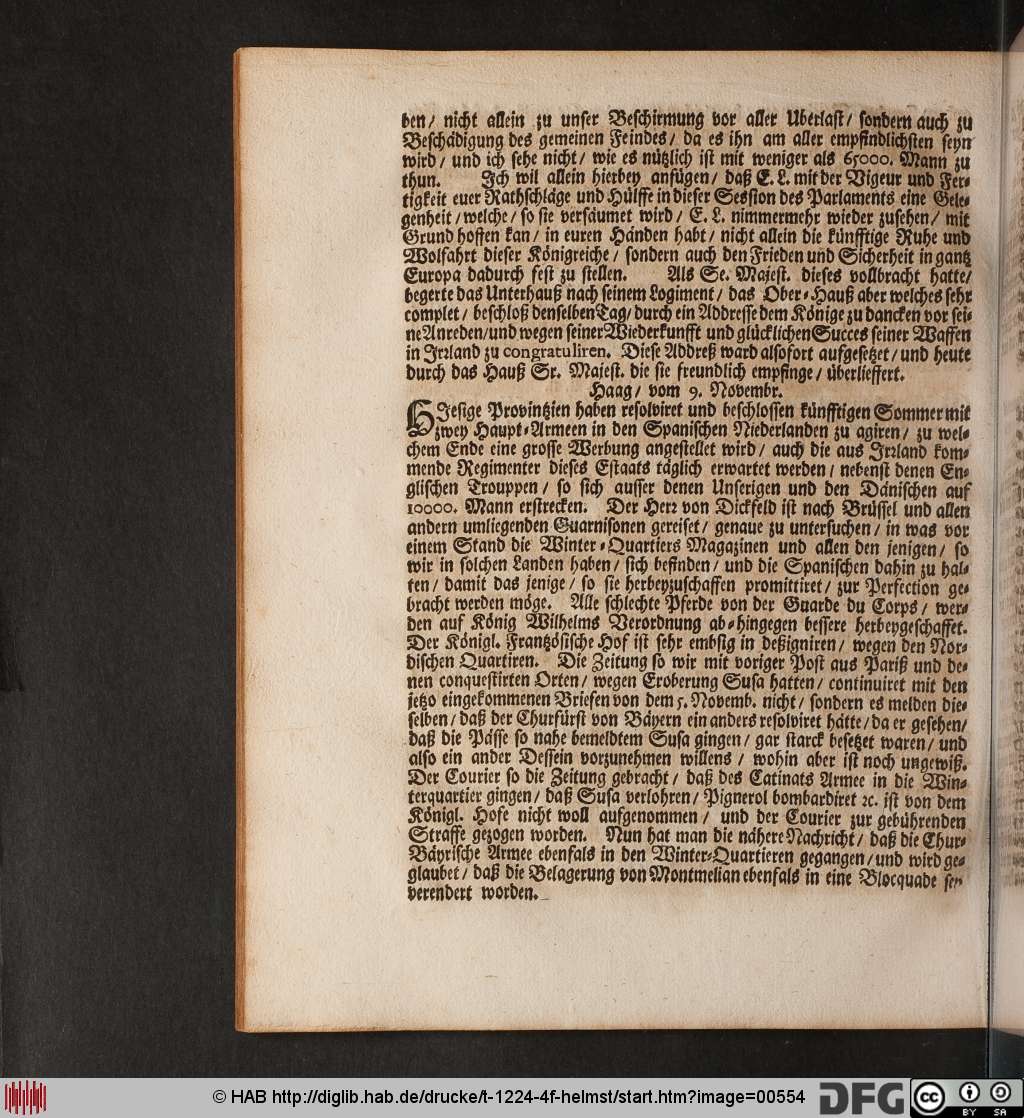 ben/ nicht allein zu unser Beschirmung vor aller Uberlast/ sondern auch zu
Beschädigung des gemeinen Feindes/ da es ihn am aller empfindlichsten seyn
wird/ und ich sehe nicht/ wie es nützlich ist mit weniger als 65000. Mann zu
thun. Ich wil allein hierbey anfügen/ daß E. L. mit der Vigeur und Fer-
tigkeit euer Rathschläge und Hülffe in dieser Session des Parlaments eine Gele-
genheit/ welche/ so sie versäumet wird/ E. L. nimmermehr wieder zusehen/ mit
Grund hoffen kan/ in euren Händen habt/ nicht allein die künfftige Ruhe und
Wolfahrt dieser Königreiche/ sondern auch den Frieden und Sicherheit in gantz
Europa dadurch fest zu stellen. Als Se. Majest. dieses vollbracht hatte/
begerte das Unterhauß nach seinem Logiment/ das Ober-Hauß aber welches sehr
complet/ beschloß denselben Tag/ durch ein Addresse dem Könige zu dancken vor sei-
ne Anreden/ und wegen seiner Wiederkunfft und glücklichen Succes seiner Waffen
in Irrland zu congratuliren. Diese Addreß ward alsofort aufgesetzet/ und heute
durch das Hauß Sr. Majest. die sie freundlich empfinge/ überlieffert.
Haag/ vom 9. Novembr.
HIesige Provintzien haben resolviret und beschlossen künfftigen Sommer mit
zwey Haupt-Armeen in den Spanischen Niederlanden zu agiren/ zu wel-
chem Ende eine grosse Werbung angestellet wird/ auch die aus Irrland kom-
mende Regimenter dieses Estaats täglich erwartet werden/ nebenst denen En-
glischen Trouppen/ so sich ausser denen Unserigen und den Dänischen auf
10000. Mann erstrecken. Der Herr von Dickfeld ist nach Brüssel und allen
andern umliegenden Guarnisonen gereiset/ genaue zu untersuchen/ in was vor
einem Stand die Winter-Quartiers Magazinen und allen den jenigen/ so
wir in solchen Landen haben/ sich befinden/ und die Spanischen dahin zu hal-
ten/ damit das jenige/ so sie herbeyzuschaffen promittiret/ zur Perfection ge-
bracht werden möge. Alle schlechte Pferde von der Guarde du Corps/ wer-
den auf König Wilhelms Verordnung ab-hingegen bessere herbeygeschaffet.
Der Königl. Frantzösische Hof ist sehr embsig in deßigniren/ wegen den Nor-
dischen Quartiren. Die Zeitung so wir mit voriger Post aus Pariß und de-
nen conquestirten Orten/ wegen Eroberung Susa hatten/ continuiret mit den
jetzo eingekommenen Briefen von dem 5. Novemb. nicht/ sondern es melden die-
selben/ daß der Churfürst von Bäyern ein anders resolviret hätte/ da er gesehen/
daß die Pässe so nahe bemeldtem Susa gingen/ gar starck besetzet waren/ und
also ein ander Dessein vorzunehmen willens/ wohin aber ist noch ungewiß.
Der Courier so die Zeitung gebracht/ daß des Catinats Armee in die Win-
terquartier gingen/ daß Susa verlohren/ Pignerol bombardiret ꝛc. ist von dem
Königl. Hofe nicht woll aufgenommen/ und der Courier zur gebührenden
Straffe gezogen worden. Nun hat man die nähere Nachricht/ daß die Chur-
Bäyrische Armee ebenfals in den Winter-Quartieren gegangen/ und wird ge-
glaubet/ daß die Belagerung von Montmelian ebenfals in eine Blocquade sey
verendert worden.
© HAB http://diglib.hab.de/drucke/t-1224-4f-helmst/start.htm?image=00554
DFG
cc BY SA